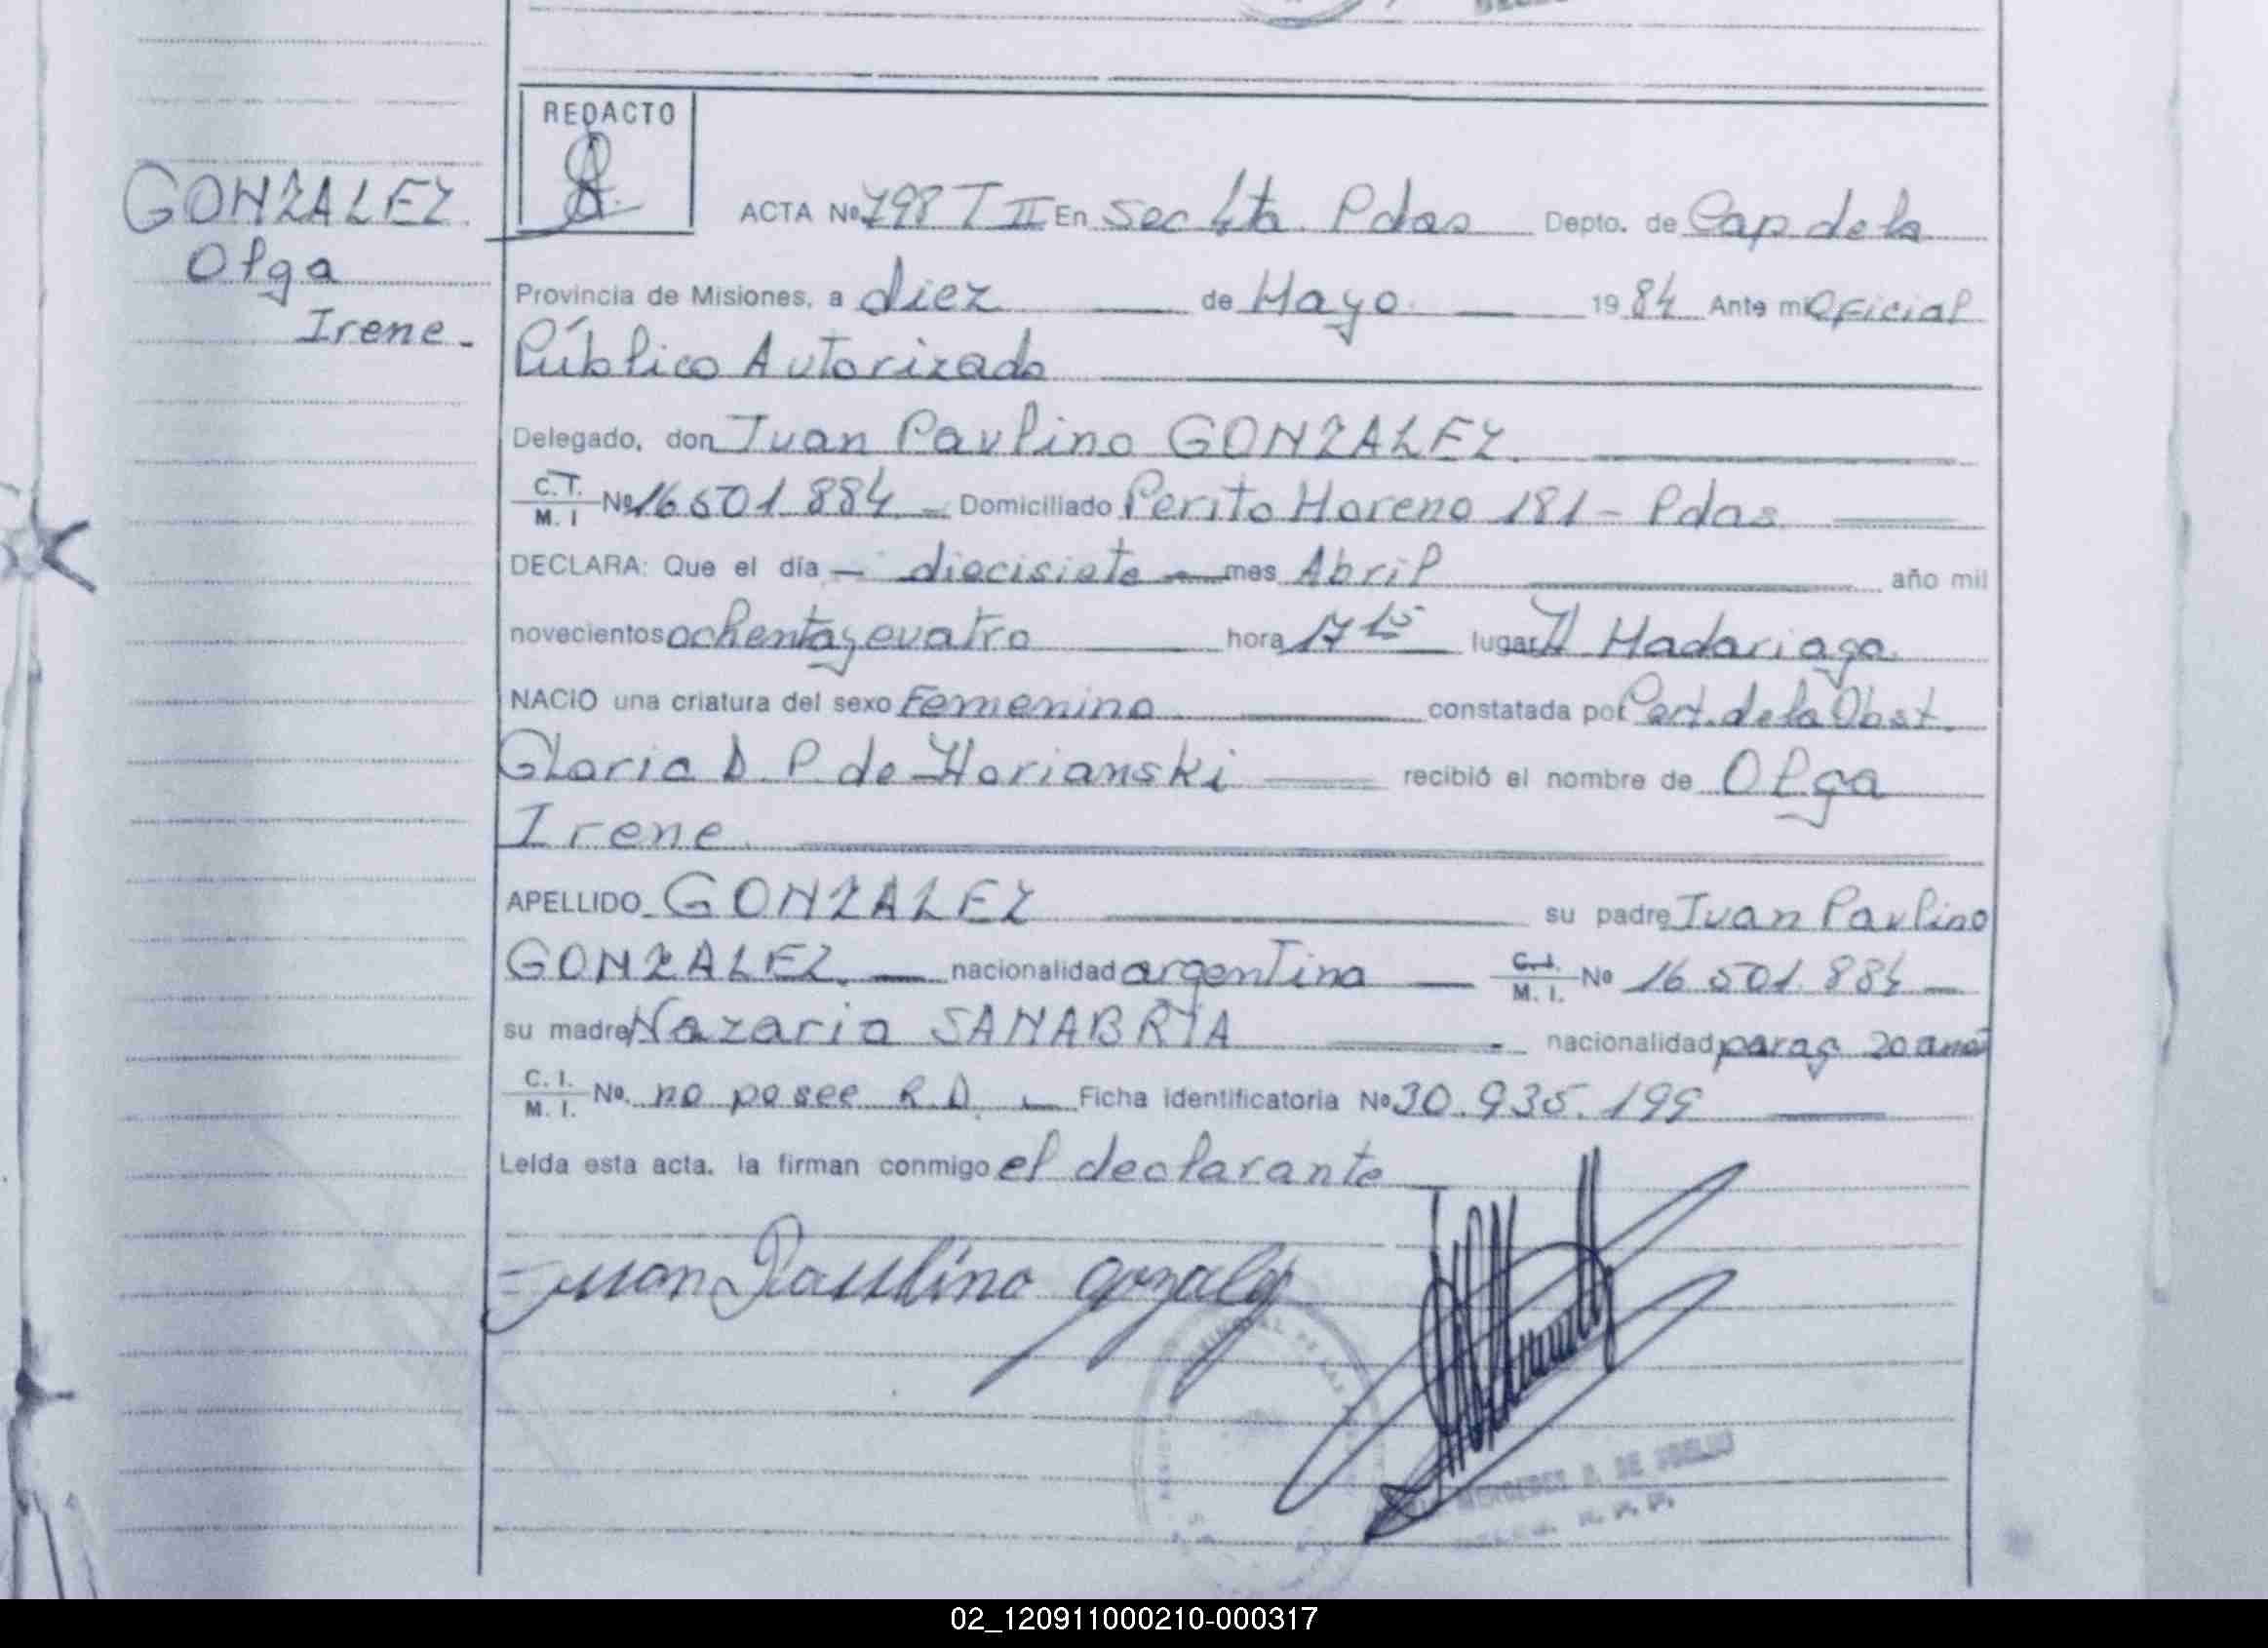 REDACTO
GONZALEZ
Olga
Irene.
ACTA Nº 798 T II En Sec 4ta Pdas Depto. de Cap de la
Provincia de Misiones, a diez de Mayo 1984 Ante mi Oficial
Público Autorizado
Delegado, don Juan Paulino GONZALEZ.
C.T. M. I Nº 16501.884 Domiciliado Perito Moreno 181 - Pdas
DECLARA: Que el día - diecisiete - mes Abril año mil
novecientos ochenta y cuatro hora 17 15 lugar H Madariaga
NACIO una criatura del sexo Femenino constatada por Cert. de la Obst.
Gloria D. P. de Horianski recibió el nombre de Olga
Irene.
APELLIDO GONZALEZ su padre Juan Paulino
GONZALEZ. nacionalidad argentina C.I. M. I. Nº 16 501.884
su madre Nazaria SANABRIA nacionalidad parag 20 años
C. I. M. I. Nº. no posee R.D. Ficha identificatoria Nº 30.935.199
Leída esta acta, la firman conmigo el declarante
Juan Paulino Gonzalez
MERCEDES DE
02_120911000210-000317